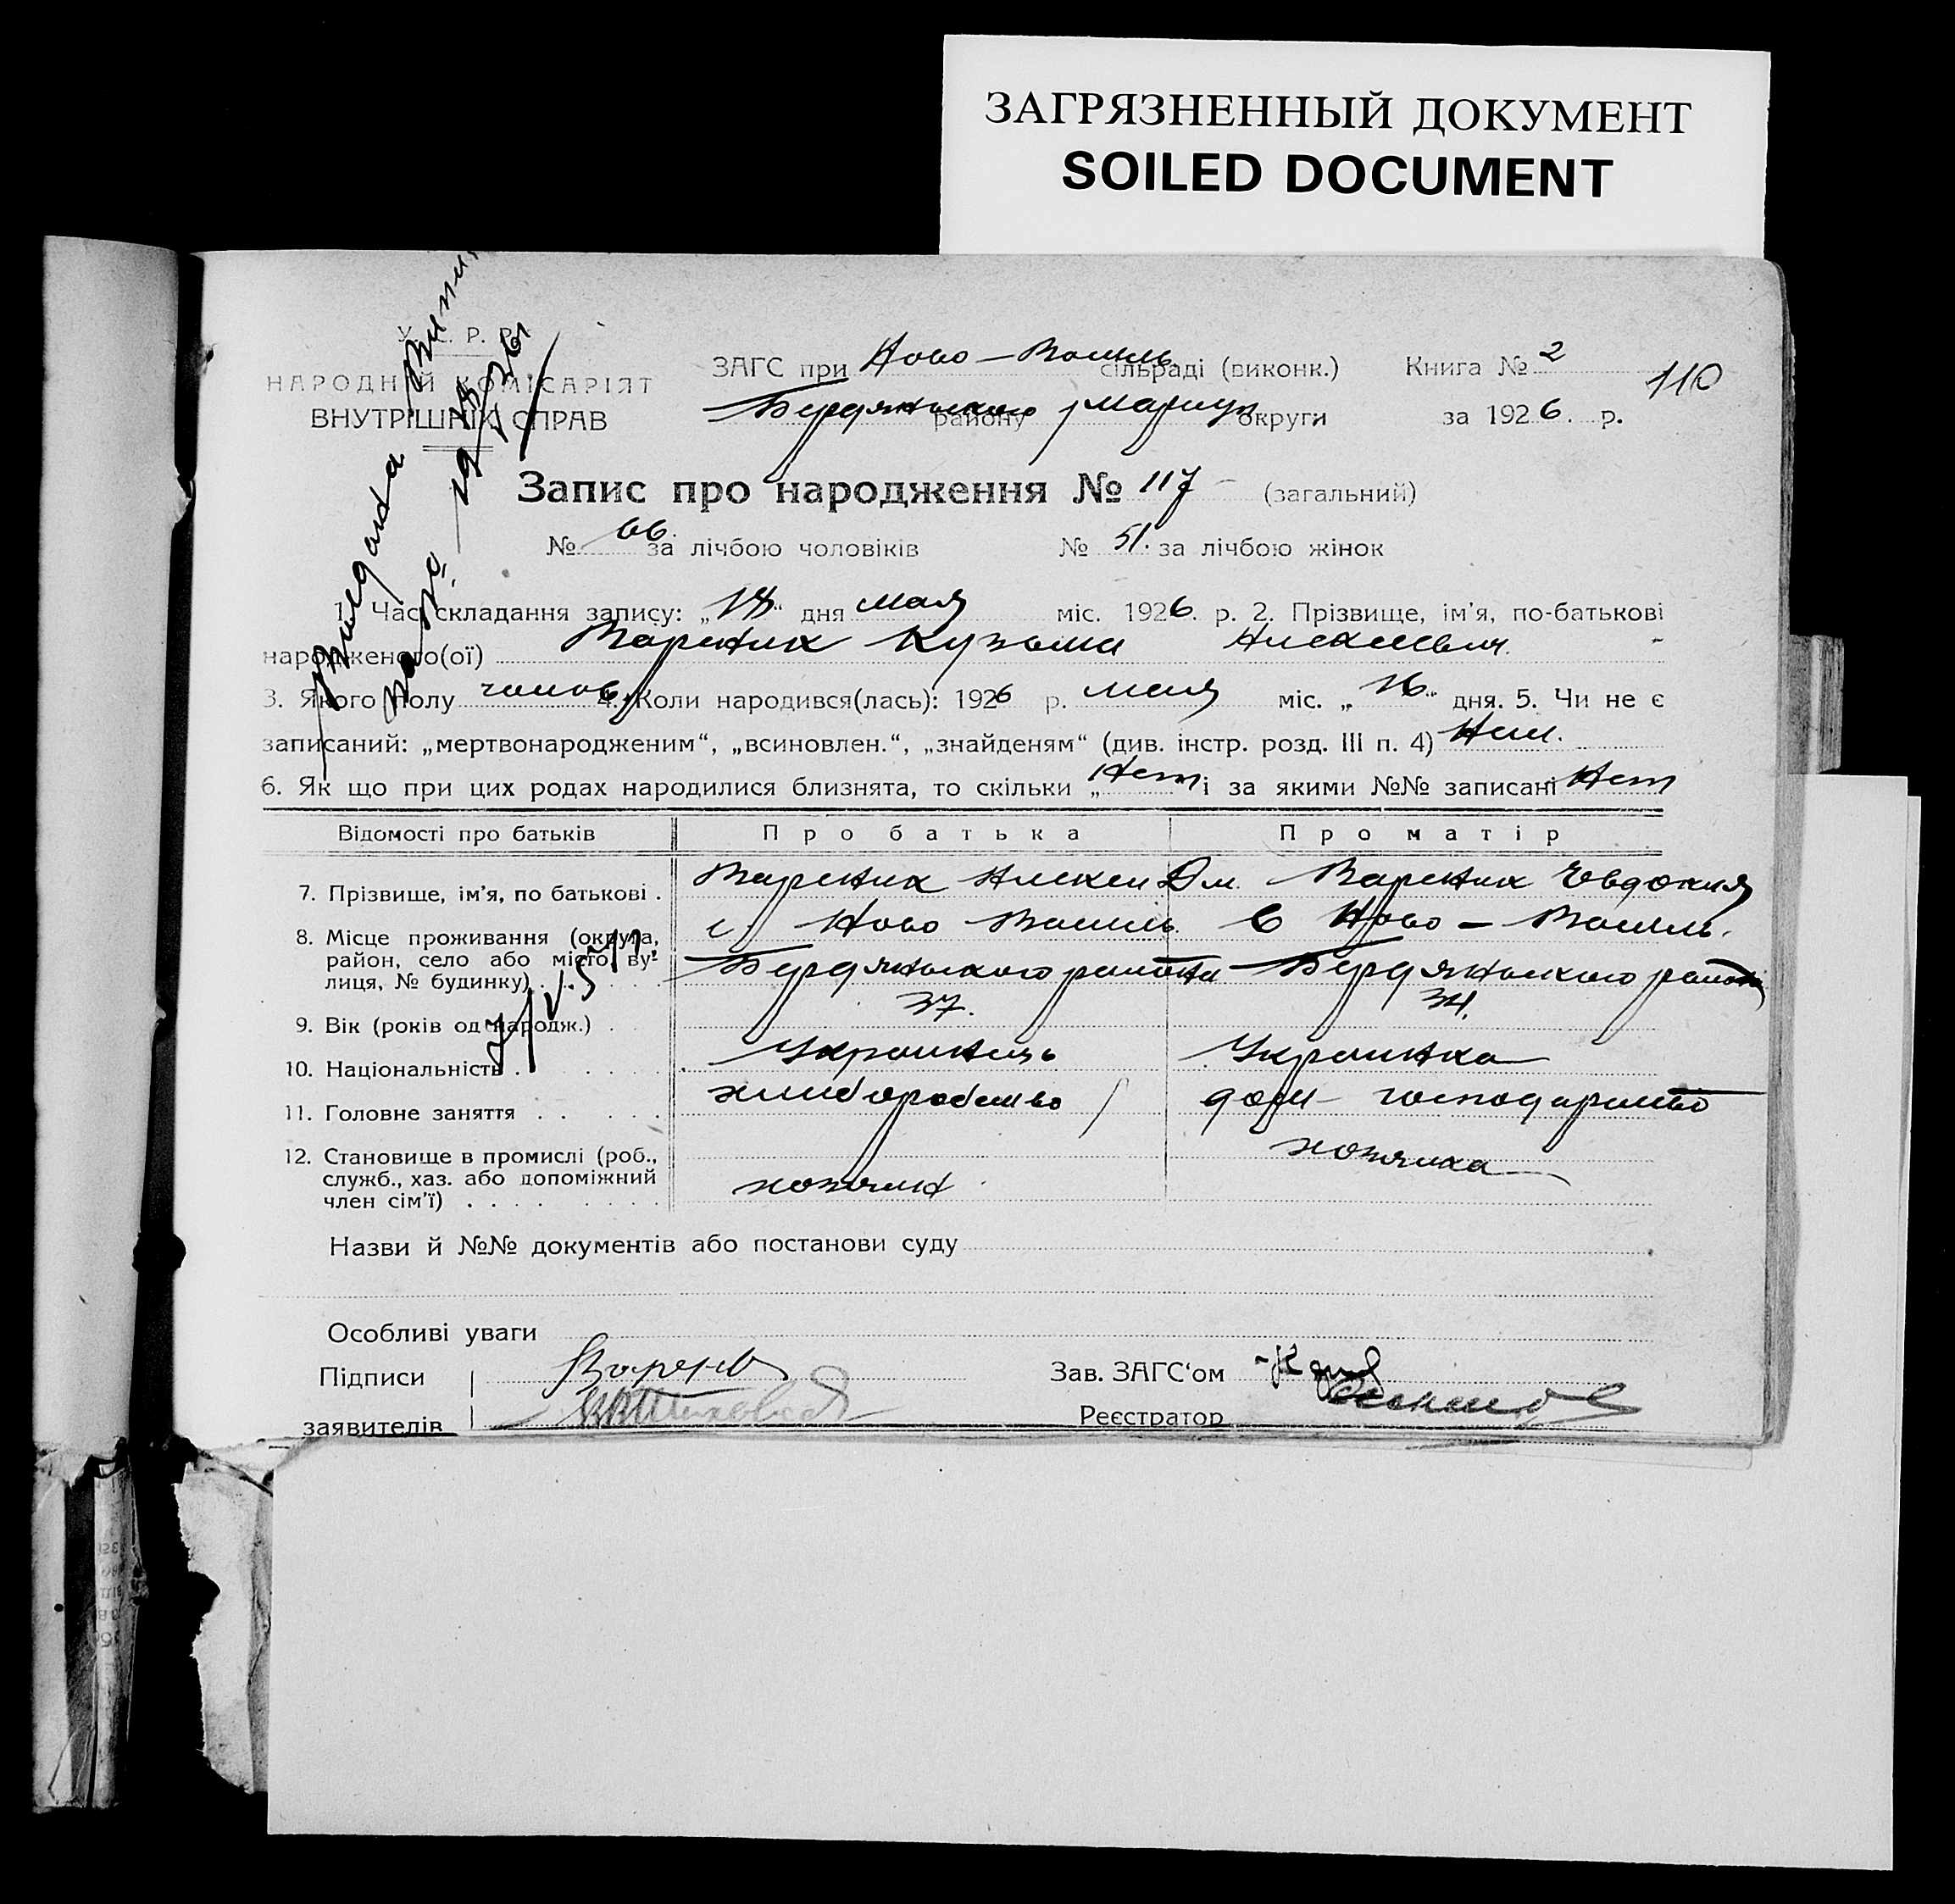 ЗАГРЯЗНЕННЫЙ ДОКУМЕНТ
SOILED DOCUMENT
НАРОДНІЙ КОМІСАРІЯТ
ВНУТРІШНІХ СПРАВ
ЗАГС при Ново-Василь сільраді (виконк.) Книга № 2
110
Бердянського району Мариуп. округи за 1926. р.
Запис про народження № 117 (загальний)
№ 66. за лічбою чоловіків № 51. за лічбою жінок
1. Час складання запису: „18“ дня мая міс. 1926. р. 2. Прізвище, ім'я, по-батькові
народженого(ої) Вареник Кузьма Алексеевич.
3. Якого полу чолов. 4. Коли народився(лась): 1926 р. мая міс. „16“ дня. 5. Чи не є
записаний: „мертвонародженим“, „всиновлен.“, „знайденям“ (див. інстр. розд. III п. 4) Нет.
6. Як що при цих родах народилися близнята, то скільки „Нет і за якими №№ записані Нет
Відомості про батьків Про батька Про матір
7. Прізвище, ім'я, по батькові . Вареник Алексей Дм. Вареник Евдокия
8. Місце проживання (округа, район, село або місто, вулиця, № будинку) . с. Ново Василь. С Ново-Василь.
Бердянського района Бердянського района
9. Вік (років од народж.) . 37. 34.
10. Національність . Украінець Украинка
11. Головне заняття . хлиборобство дом- господарство
12. Становище в промислі (роб.,
служб., хаз. або допоміжний
член сім'ї) . хозяин хозяйка
Назви й №№ документів або постанови суду
Особливі уваги
Підписи Варенв Зав. ЗАГС'ом
заявителів Реєстратор